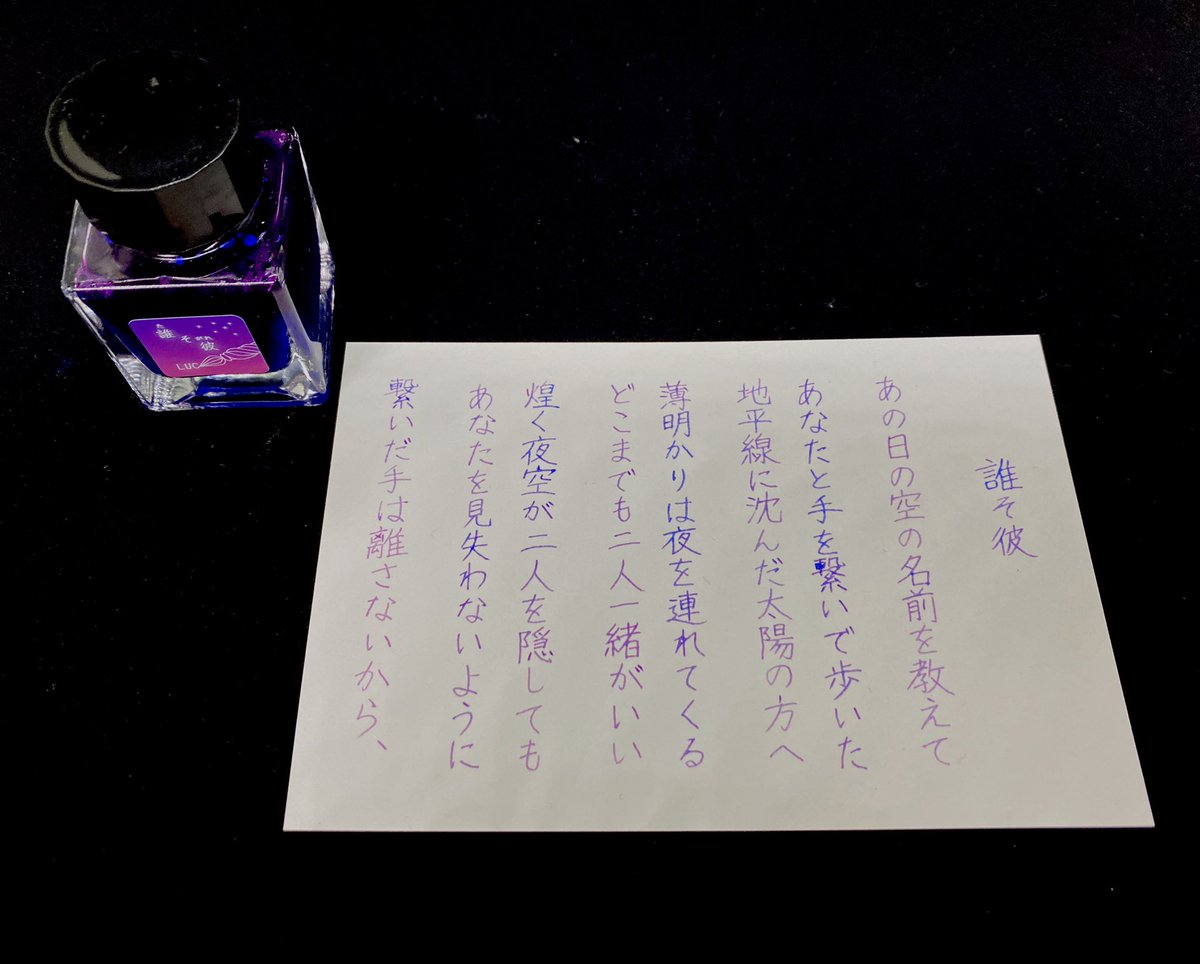 誰そ彼
あの日の空の名前を教えて
あなたと手を繋いで歩いた
地平線に沈んだ太陽の方へ
薄明かりは夜を連れてくる
どこまでも二人一緒がいい
煌く夜空が二人を隠しても
あなたを見失わないように
繋いだ手は離さないから、
誰そ彼
LUC